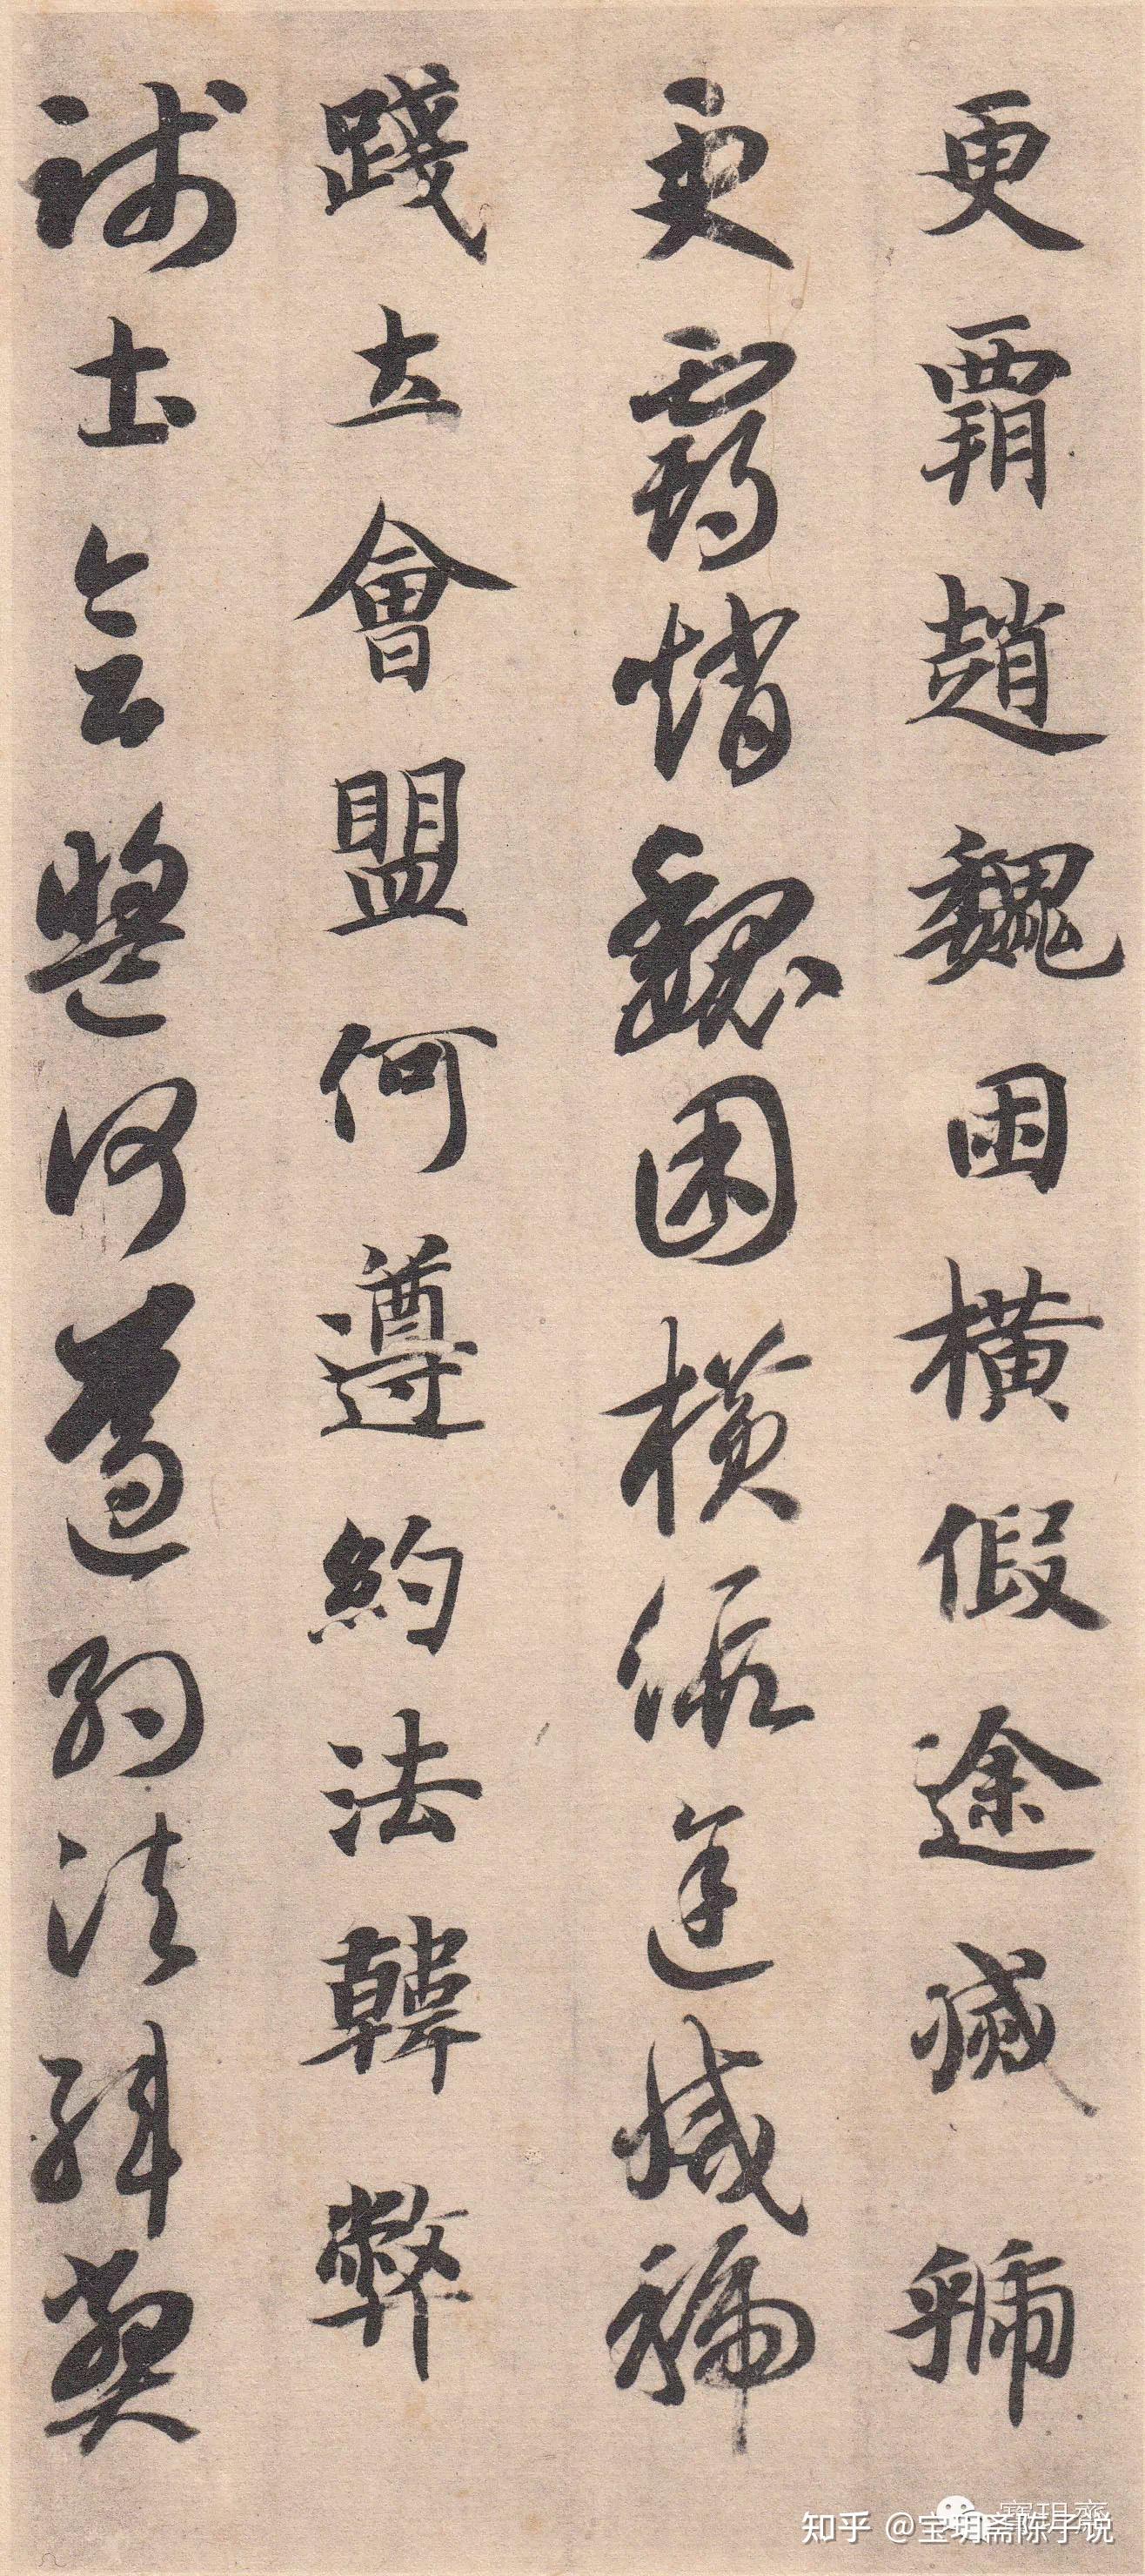 更霸趙魏困橫假途滅虢
更霸趙魏困橫假途滅虢
踐土會盟何遵約法韓弊
踐土會盟何遵約法韓弊
寶玥齋
知乎 @宝玥斋陈子说